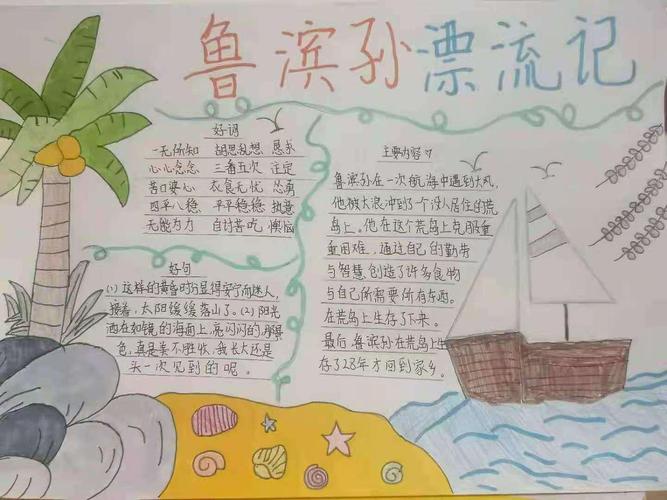 鲁滨孙漂流记
好词
一无所知 胡思乱想 恳求
心心念念 三番五次 注定
苦口婆心 衣食无忧 怂勇
四平八稳 平平稳稳 执意
无能为力 自讨苦吃 懊恼
好句
(1)这样的黄昏时分显得安宁而迷人,
接着,太阳缓缓落山了。(2)阳光
洒在如镜的海面上,亮闪闪的,
色,真是美不胜收,我长大还是
头一次见到的呢。
主要内容
鲁滨孙在一次航海中遇到大风,
他被大浪冲到了个没人居住的荒
岛上。他在这个荒岛上克服重
重困难,通过自己的勤劳
与智慧创造了许多食物
与自己所需要所有东西。
在荒岛上生存了下来。
最后,鲁滨孙在荒岛上生
存了28年才回到家乡。